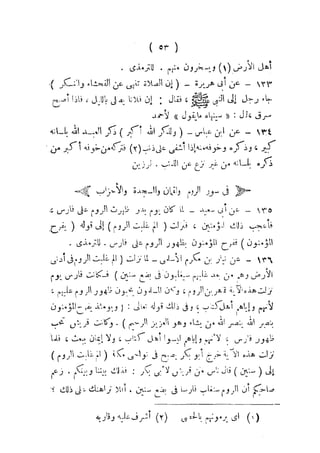 ( ٥٣ )
أهل الأرض (١) ويسخرون منهم . للترمذي .
١٣٣ - عن أبي هريرة - ( إن الصلاة تنهى عن الفحشاء والمنكر )
جاء رجل إلى النبي ﷺ ، فقال : إن فلانا يصلى بالليل ، فاذا أصبح
سرق ، قال : « سينهاه ما يقول » لأحمد
١٣٤ - عن ابن عباس - ( ولذكر الله أكبر ) ذكر العبد الله بلسانه
كبير ، وذكره وخوفه منه إذا أشفى على ذنب (٢) فتركه من خوفه أكبر من
ذكره بلسانه من غير نزع عن الذنب . لرزين
في سور الروم ولقمان والسجدة والأحزاب
١٣٥ - عن أبي سعيد - لما كان يوم بدر ظهرت الروم على فارس ،
فأعجب ذلك المؤمنين ، فنزلت ( الم غلبت الروم ) إلى قوله ( يفرح
المؤمنون ) ففرح المؤمنون بظهور الروم على فارس . للترمذي .
١٣٦ - عن نيار بن مكرم الأسلمي - لما نزلت ( الم غلبت الروم في أدنى
الأرض وهم من بعد غلبهم سيغلبون في بضع سنين ) فكانت فارس يوم
نزلت هذه الآية قاهرين للروم ، وكان المسلمون يحبون ظهور الروم عليهم ،
لأنهم وإياهم أهل كتاب ، وفي ذلك قوله تعالى : ( ويومئذ يفرح المؤمنون
بنصر الله ينصر الله من يشاء وهو العزيز الرحيم ) . وكانت قريش تحب
ظهور فارس ، لأنهم وإياهم ليسوا أهل كتاب ، ولا إيمان ببعث ، فلما
نزلت هذه الآية خرج أبو بكر يصيح في نواحي مكة ( الم غلبت الروم )
إلى ( سنين ) قال ناس من قريش لأبي بكر : فذلك بيننا وبينكم . زعم
صاحبكم أن الروم ستغلب فارسا في بضع سنين . أفلا نراهنك على ذلك ؟
(١) اى يرمونهم بالحصى (٢) أشرف عليه وقاربه